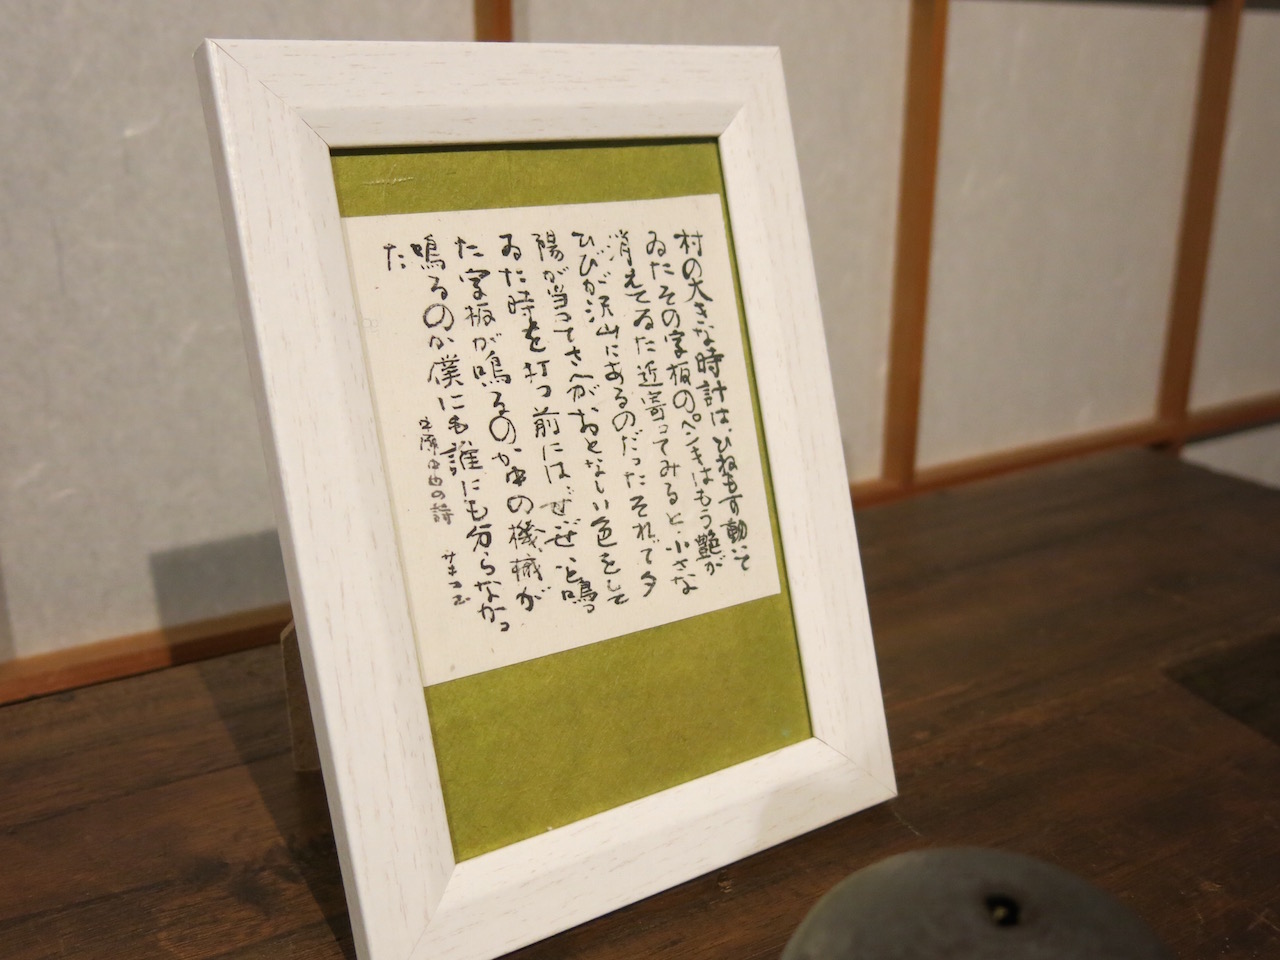 村の大きな時計は、ひねもす動いて
ゐたその字板のペンキはもう艶が
消えてゐた近寄ってみると、小さな
ひびが沢山にあるのだったそれで夕
陽が当ってさへがおとなしい色をして
ゐた時を打つ前には、ぜいぜいと鳴っ
た字板が鳴るのか中の機械が
鳴るのか僕にも誰にも分らなかっ
た
中原中也の詩